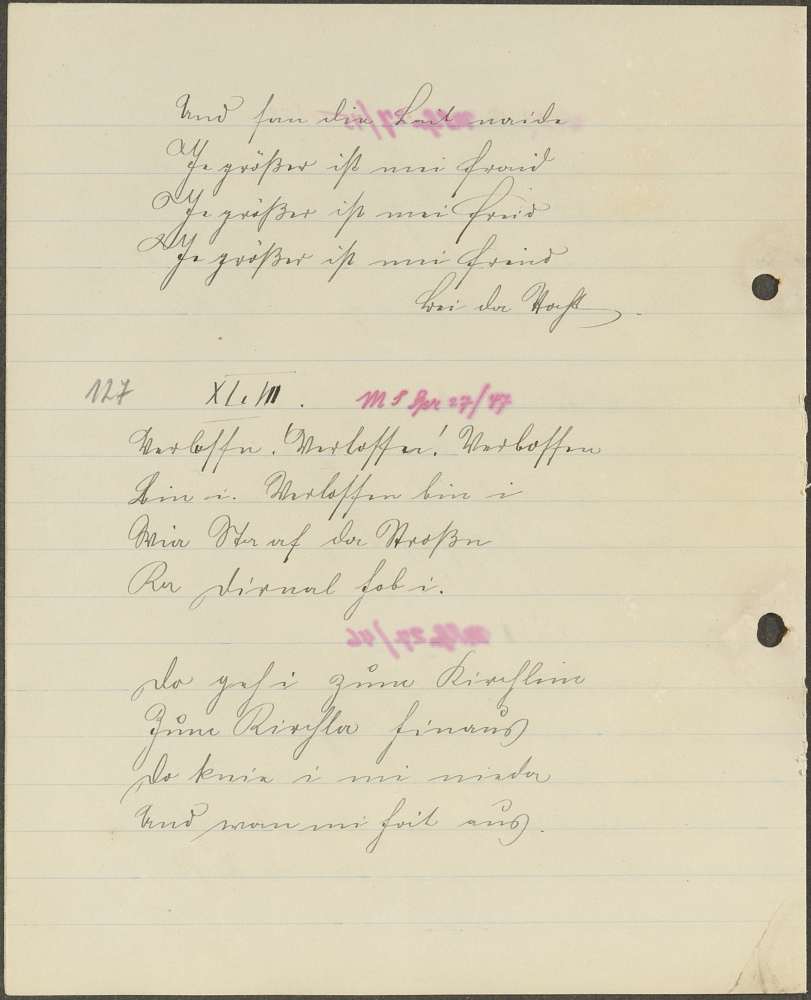 Und san die Leit naida
Je größer ist mei Fraid
Je größer ist mei Freid
Je größer ist mei Freind
Bei da Nacht
127 XLVIII. MS Spr 27/47
Verlossn! Verlossen! Verlossen
Bin i. Verlossen bin i
Wia Sta af da Stroßn
Ka Dirnal hob i.
Do geh i zum Kirchlein
Zum Kirchla hinaus
Do knia i mi nieda
Und wan mi heit aus.